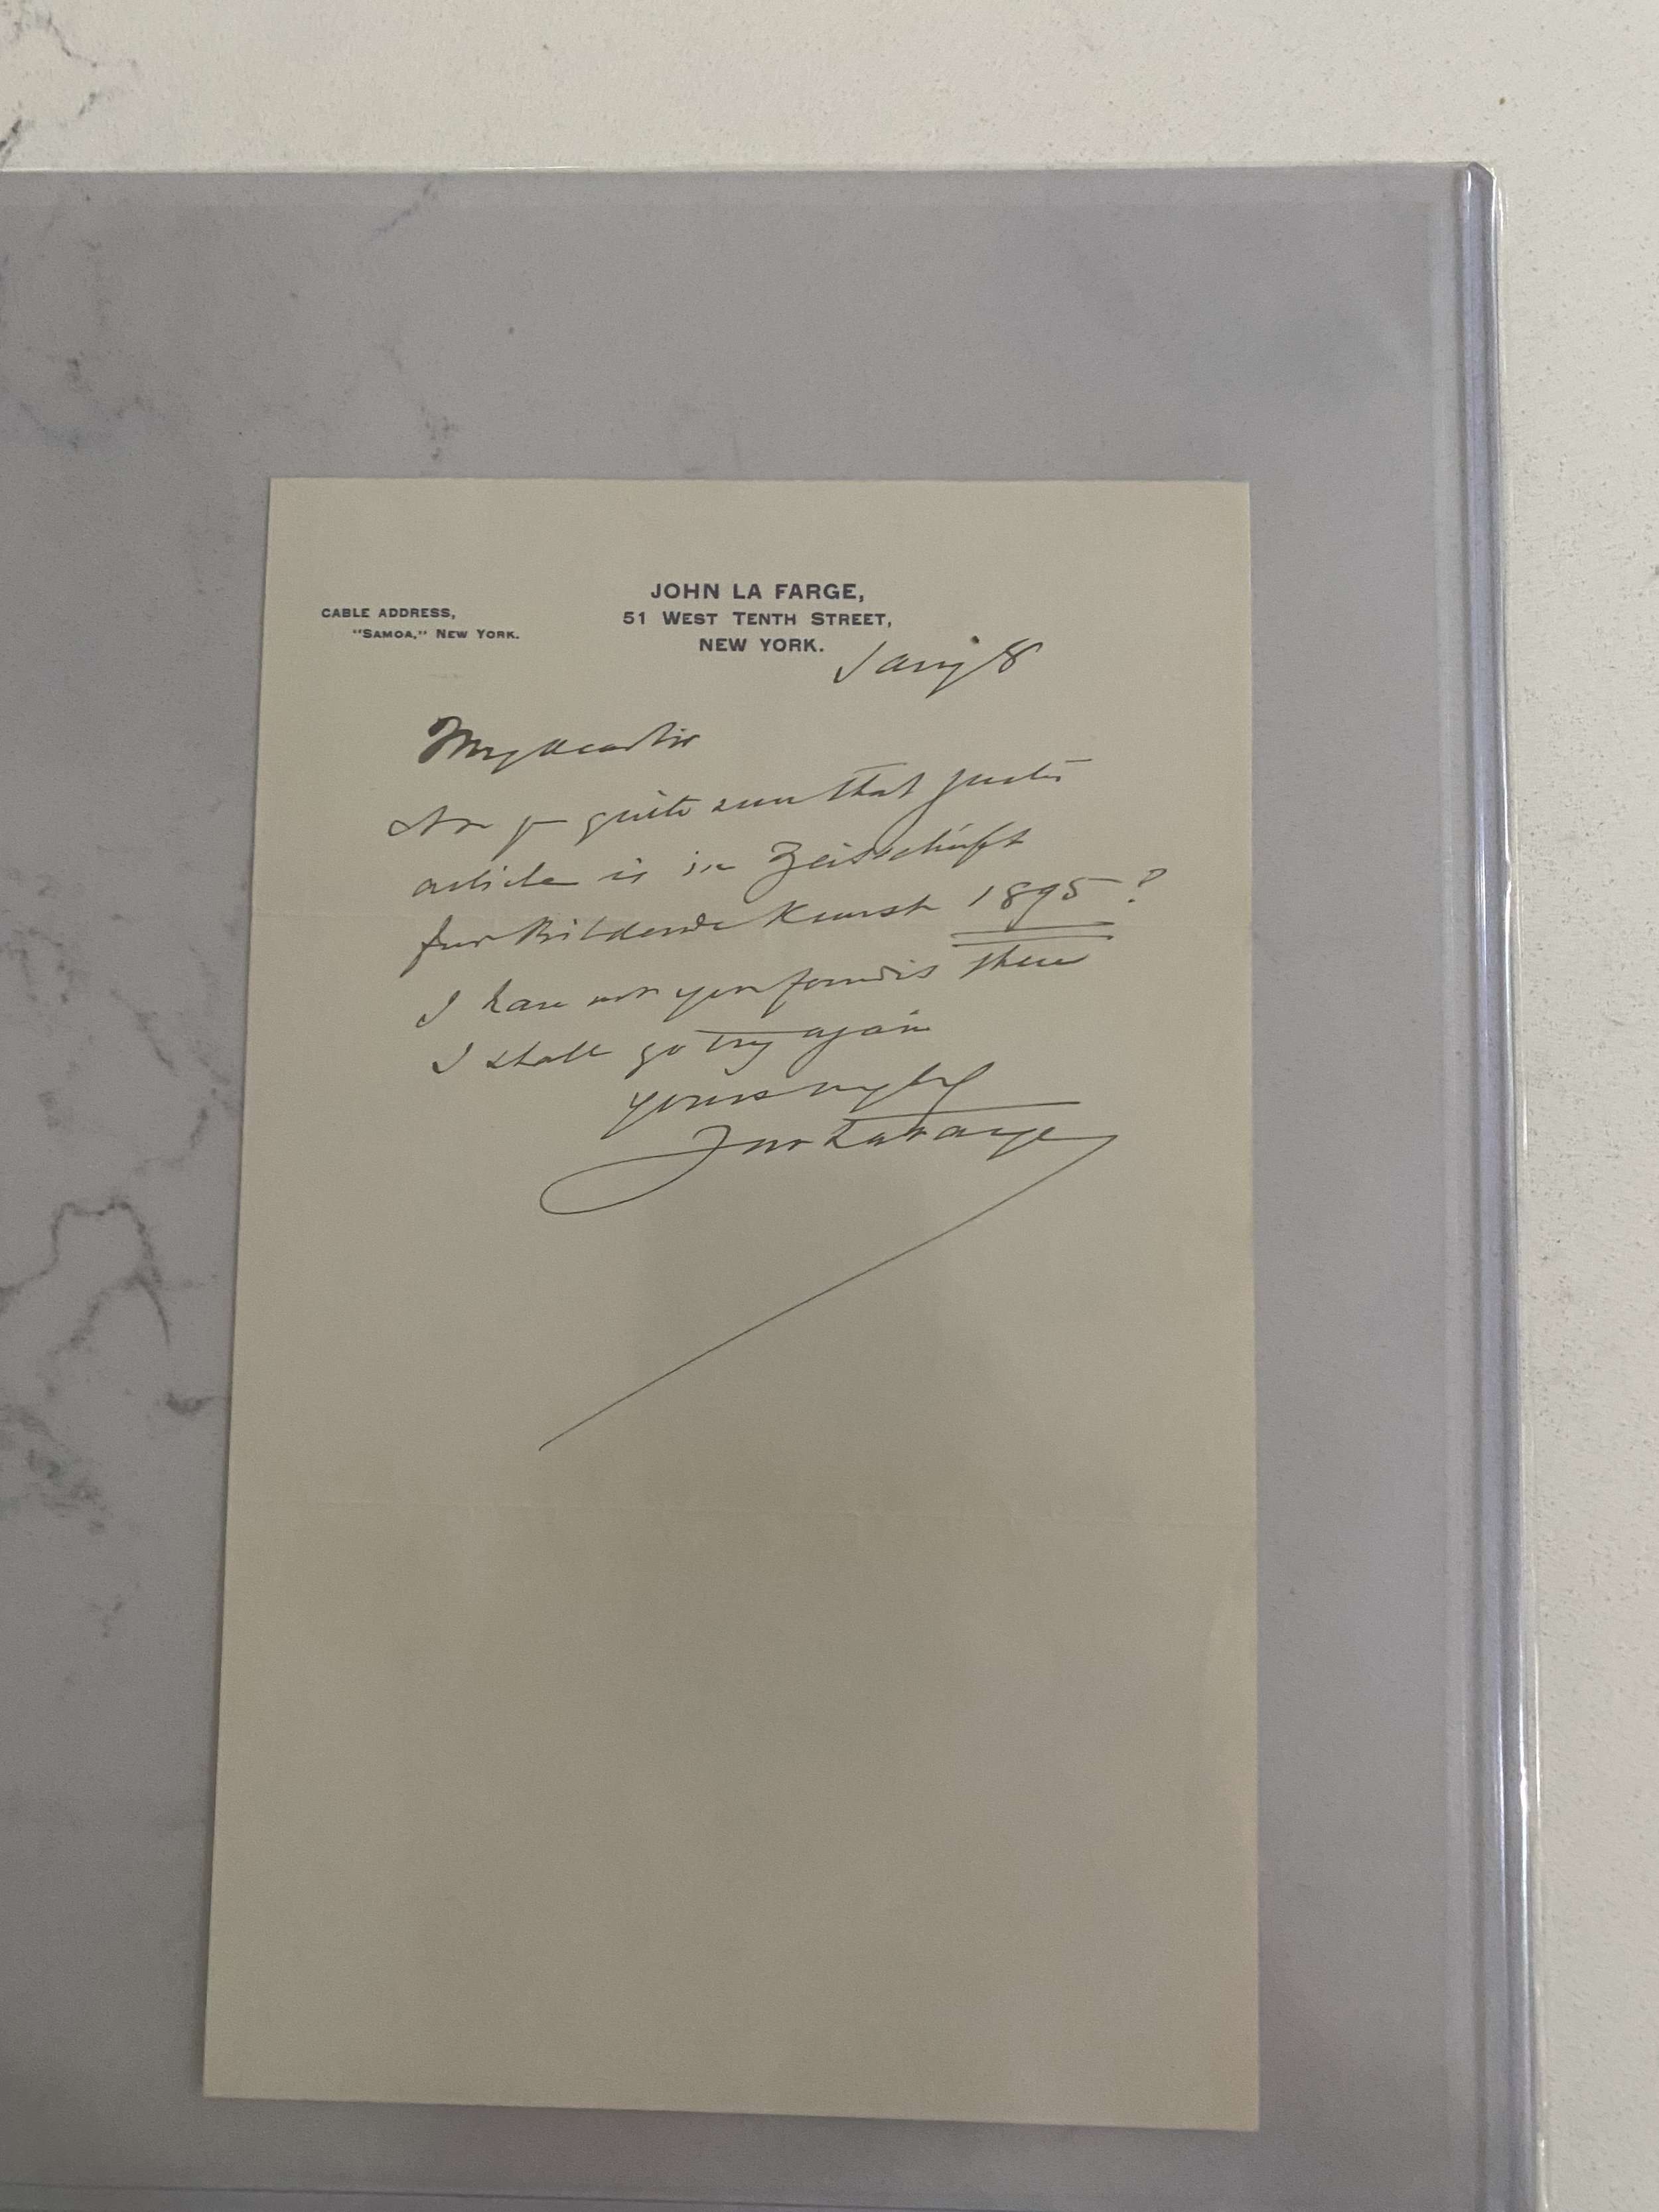 JOHN LA FARGE,
51 WEST TENTH STREET,
NEW YORK.
CABLE ADDRESS,
"SAMOA," NEW YORK.
Jany 8
My dear Sir
Are you quite sure that Justi's
article is in Zeitschrift
fur Bildende Kunst 1895?
I have not yet found it there
I shall go try again
Yours truly
Jno La Farge